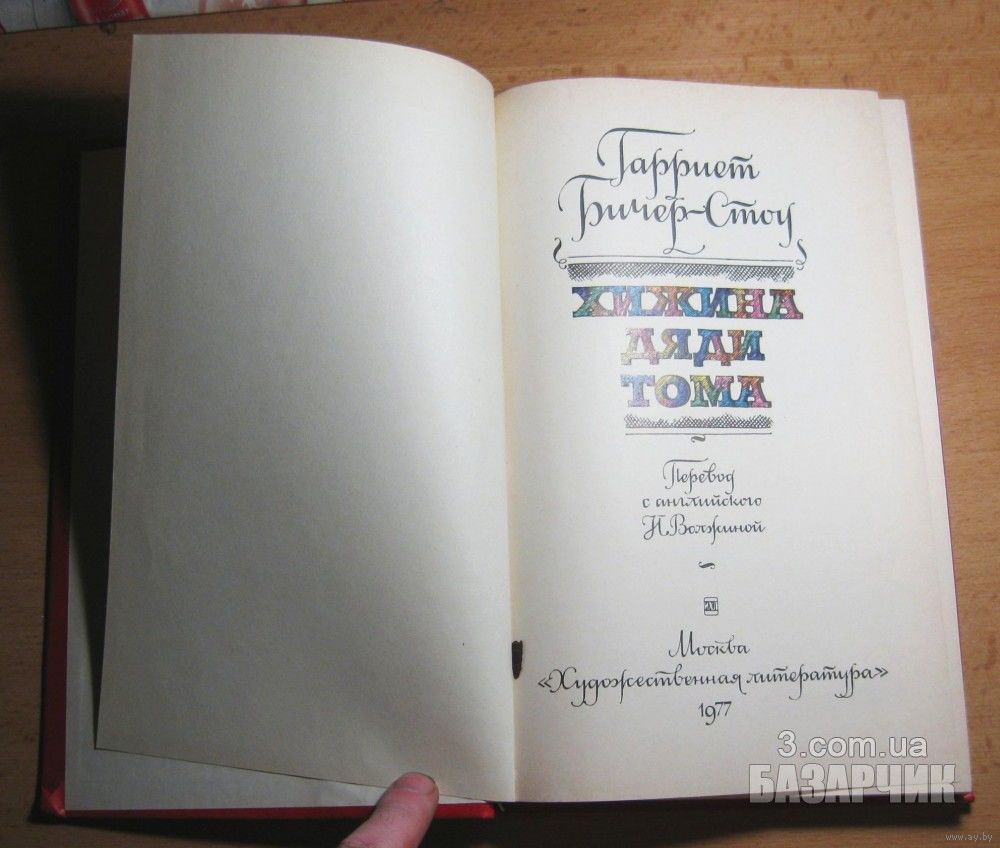 Гарриет
Бичер-Стоу
ХИЖИНА
ДЯДИ
ТОМА
Перевод
с английского
Н. Волжиной
Москва
«Художественная литература»
1977
3.com.ua
БАЗАРЧИК
www.ay.by